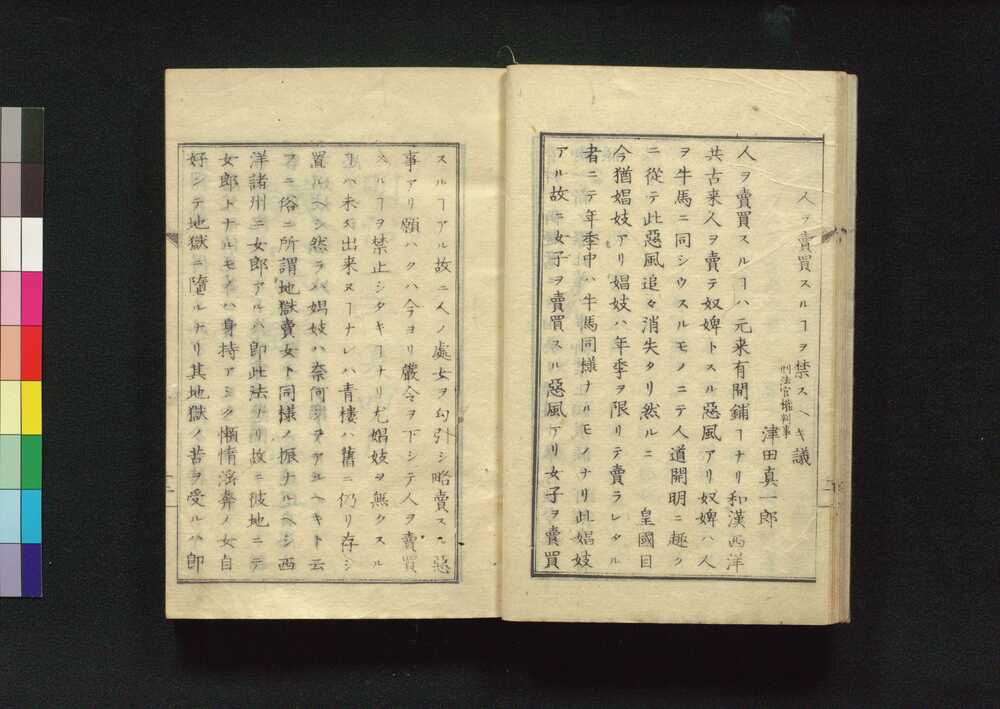 人ヲ賣買スルヿヲ禁スヘキ議
刑法官權判事
津田真一郎
人ヲ賣買スルヿハ元来有間鋪ヿナリ和漢西洋
共古来人ヲ賣テ奴婢トスル惡風アリ奴婢ハ人
ヲ牛馬ニ同シウスルモノニテ人道開明ニ趣ク
ニ從テ此惡風追々消失タリ然ルニ 皇國目
今猶娼妓アリ娼妓ハ年季ヲ限リテ賣ラレタル
者ニテ年季中ハ牛馬同樣ナルモノナリ此娼妓
アル故ニ女子ヲ賣買スル惡風アリ女子ヲ賣買
スルヿアル故ニ人ノ處女ヲ勾引シ略賣スル惡
事アリ願ハクハ今ヨリ嚴令ヲ下シテ人ヲ賣買
スルヿヲ禁止シタキヿナリ尤娼妓ヲ無クスル
ヿハ未タ出来ヌヿナレハ青樓ハ舊ニ仍リ存シ
置ルヘシ然ラハ娼妓ハ奈何シテアルヘキト云
フニ俗ニ所謂地獄賣女ト同様ノ振ナルヘシ西
洋諸州ニ女郎アルハ即此法ナリ故ニ彼地ニテ
女郎トナルモノハ身持アシク懶惰滛奔ノ女自
好シテ地獄ニ墮ルナリ其地獄ノ苦ヲ受ルハ即